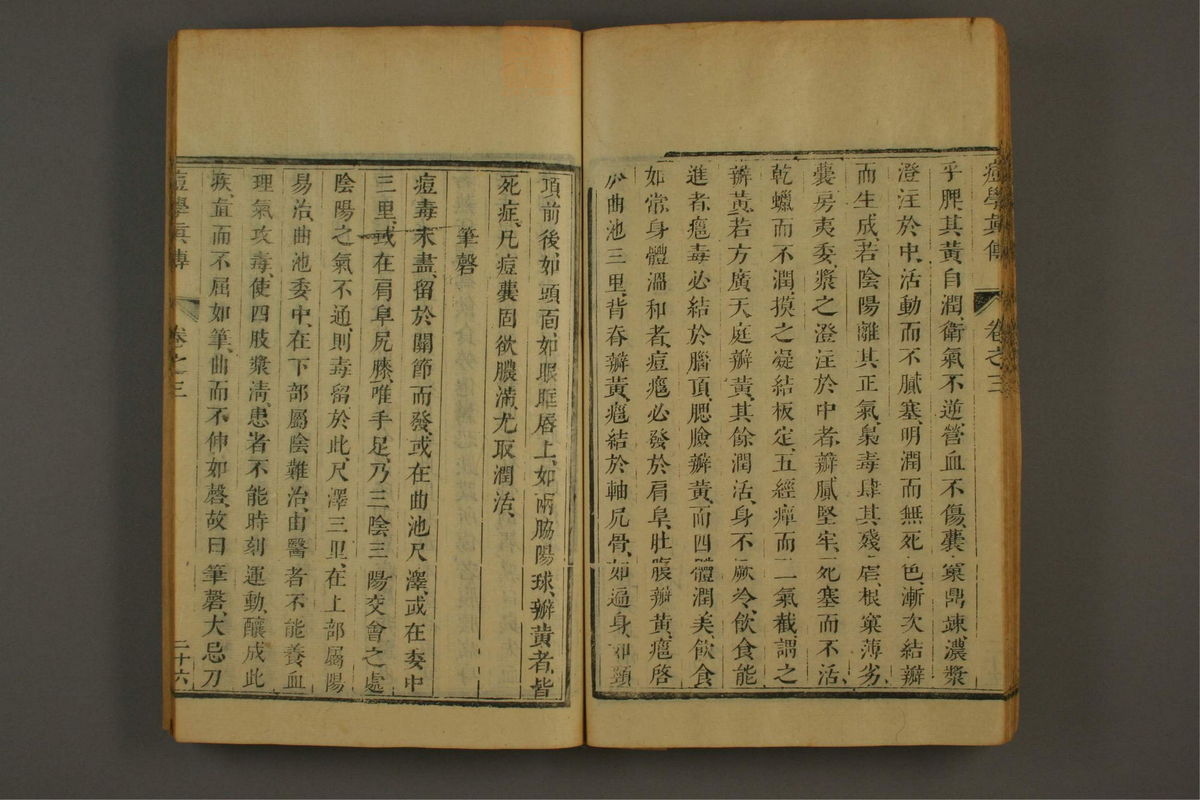 痘學真傳 卷之三
乎脾其黃自潤衛氣不逆營血不傷囊窠鼎竦濃漿
澄注於中活動而不膩塞明潤而無死色漸次結瓣
而生成若陰陽離其正氣梟毒肆其殘虐根窠薄劣
囊房夷委漿之澄注於中者瓣膩堅牢死塞而不活
乾蠟而不潤摸之凝結板定五經癉而二氣截謂之
瓣黃若方廣天庭瓣黃其餘潤活身不厥冷飲食能
進者瘟毒必結於腦頂腮臉瓣黃而四體潤美飲食
如常身體溫和者痘瘟必發於肩阜肚腹瓣黃瘟啓
於曲池三里背脊瓣黃瘟結於軸尻骨如遍身如頸
項前後如頭面如眼眶唇上如兩脇陽球瓣黃者皆
死症凡痘囊固欲膿滿尤取潤活
筆磬
痘毒未盡留於關節而發或在曲池尺澤或在委中
三里或在肩阜尻膝唯手足乃三陰三陽交會之處
陰陽之氣不通則毒留於此尺澤三里在上部屬陽
易治曲池委中在下部屬陰難治由醫者不能養血
理氣攻毒使四肢漿清患者不能時刻運動釀成此
疾直而不屈如筆曲而不伸如磬故曰筆磬大忌刀
痘學真傳 卷之三 二十六